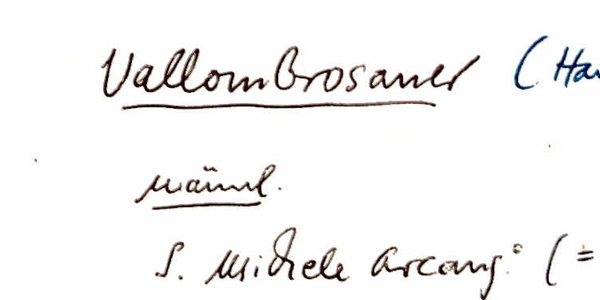 Vallombrosaner (Ha
männl.
S. Michele Arcang.º (=